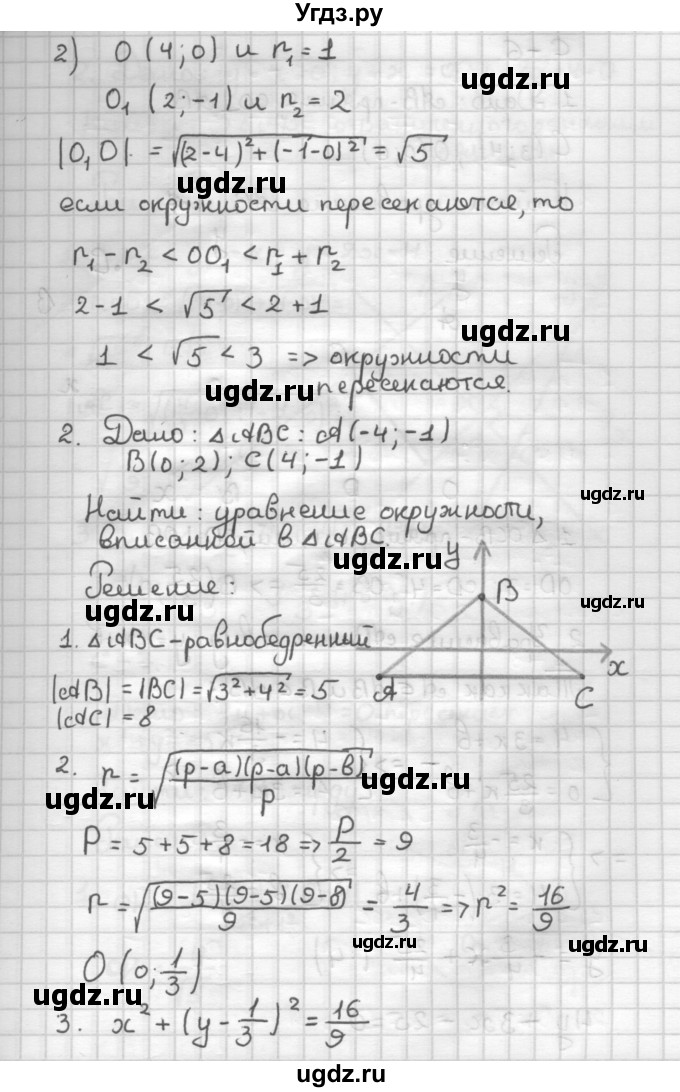 Угдз.ру
2) O (4;0) и r₁ = 1
ugdz.ru
O₁ (2;-1) и r₂ = 2
ugdz.ru
|O₁O| = √((2-4)²+(-1-0)²) = √5
ugdz.ru
если окружности пересекаются, то
r₁ - r₂ < OO₁ < r₁ + r₂
ugdz.ru
2-1 < √5 < 2+1
ugdz.ru
1 < √5 < 3 => окружности
ugdz.ru
пересекаются.
2. Дано: ΔABC: A(-4;-1)
B(0;2); C(4;-1)
ugdz.ru
Найти: уравнение окружности,
вписанной в ΔABC.
ugdz.ru
y
Решение:
B
ugdz.ru
ugdz.ru
1. ΔABC - равнобедренный
x
|AB| = |BC| = √(3²+4²) = 5
ugdz.ru
A
C
|AC| = 8
2. r = √((p-a)(p-a)(p-b)/p)
ugdz.ru
ugdz.ru
P = 5+5+8 = 18 => P/2 = 9
ugdz.ru
r = √((9-5)(9-5)(9-8)/9) = 4/3 => r² = 16/9
ugdz.ru
ugdz.ru
O (0; 1/3)
ugdz.ru
3. x² + (y - 1/3)² = 16/9
ugdz.ru